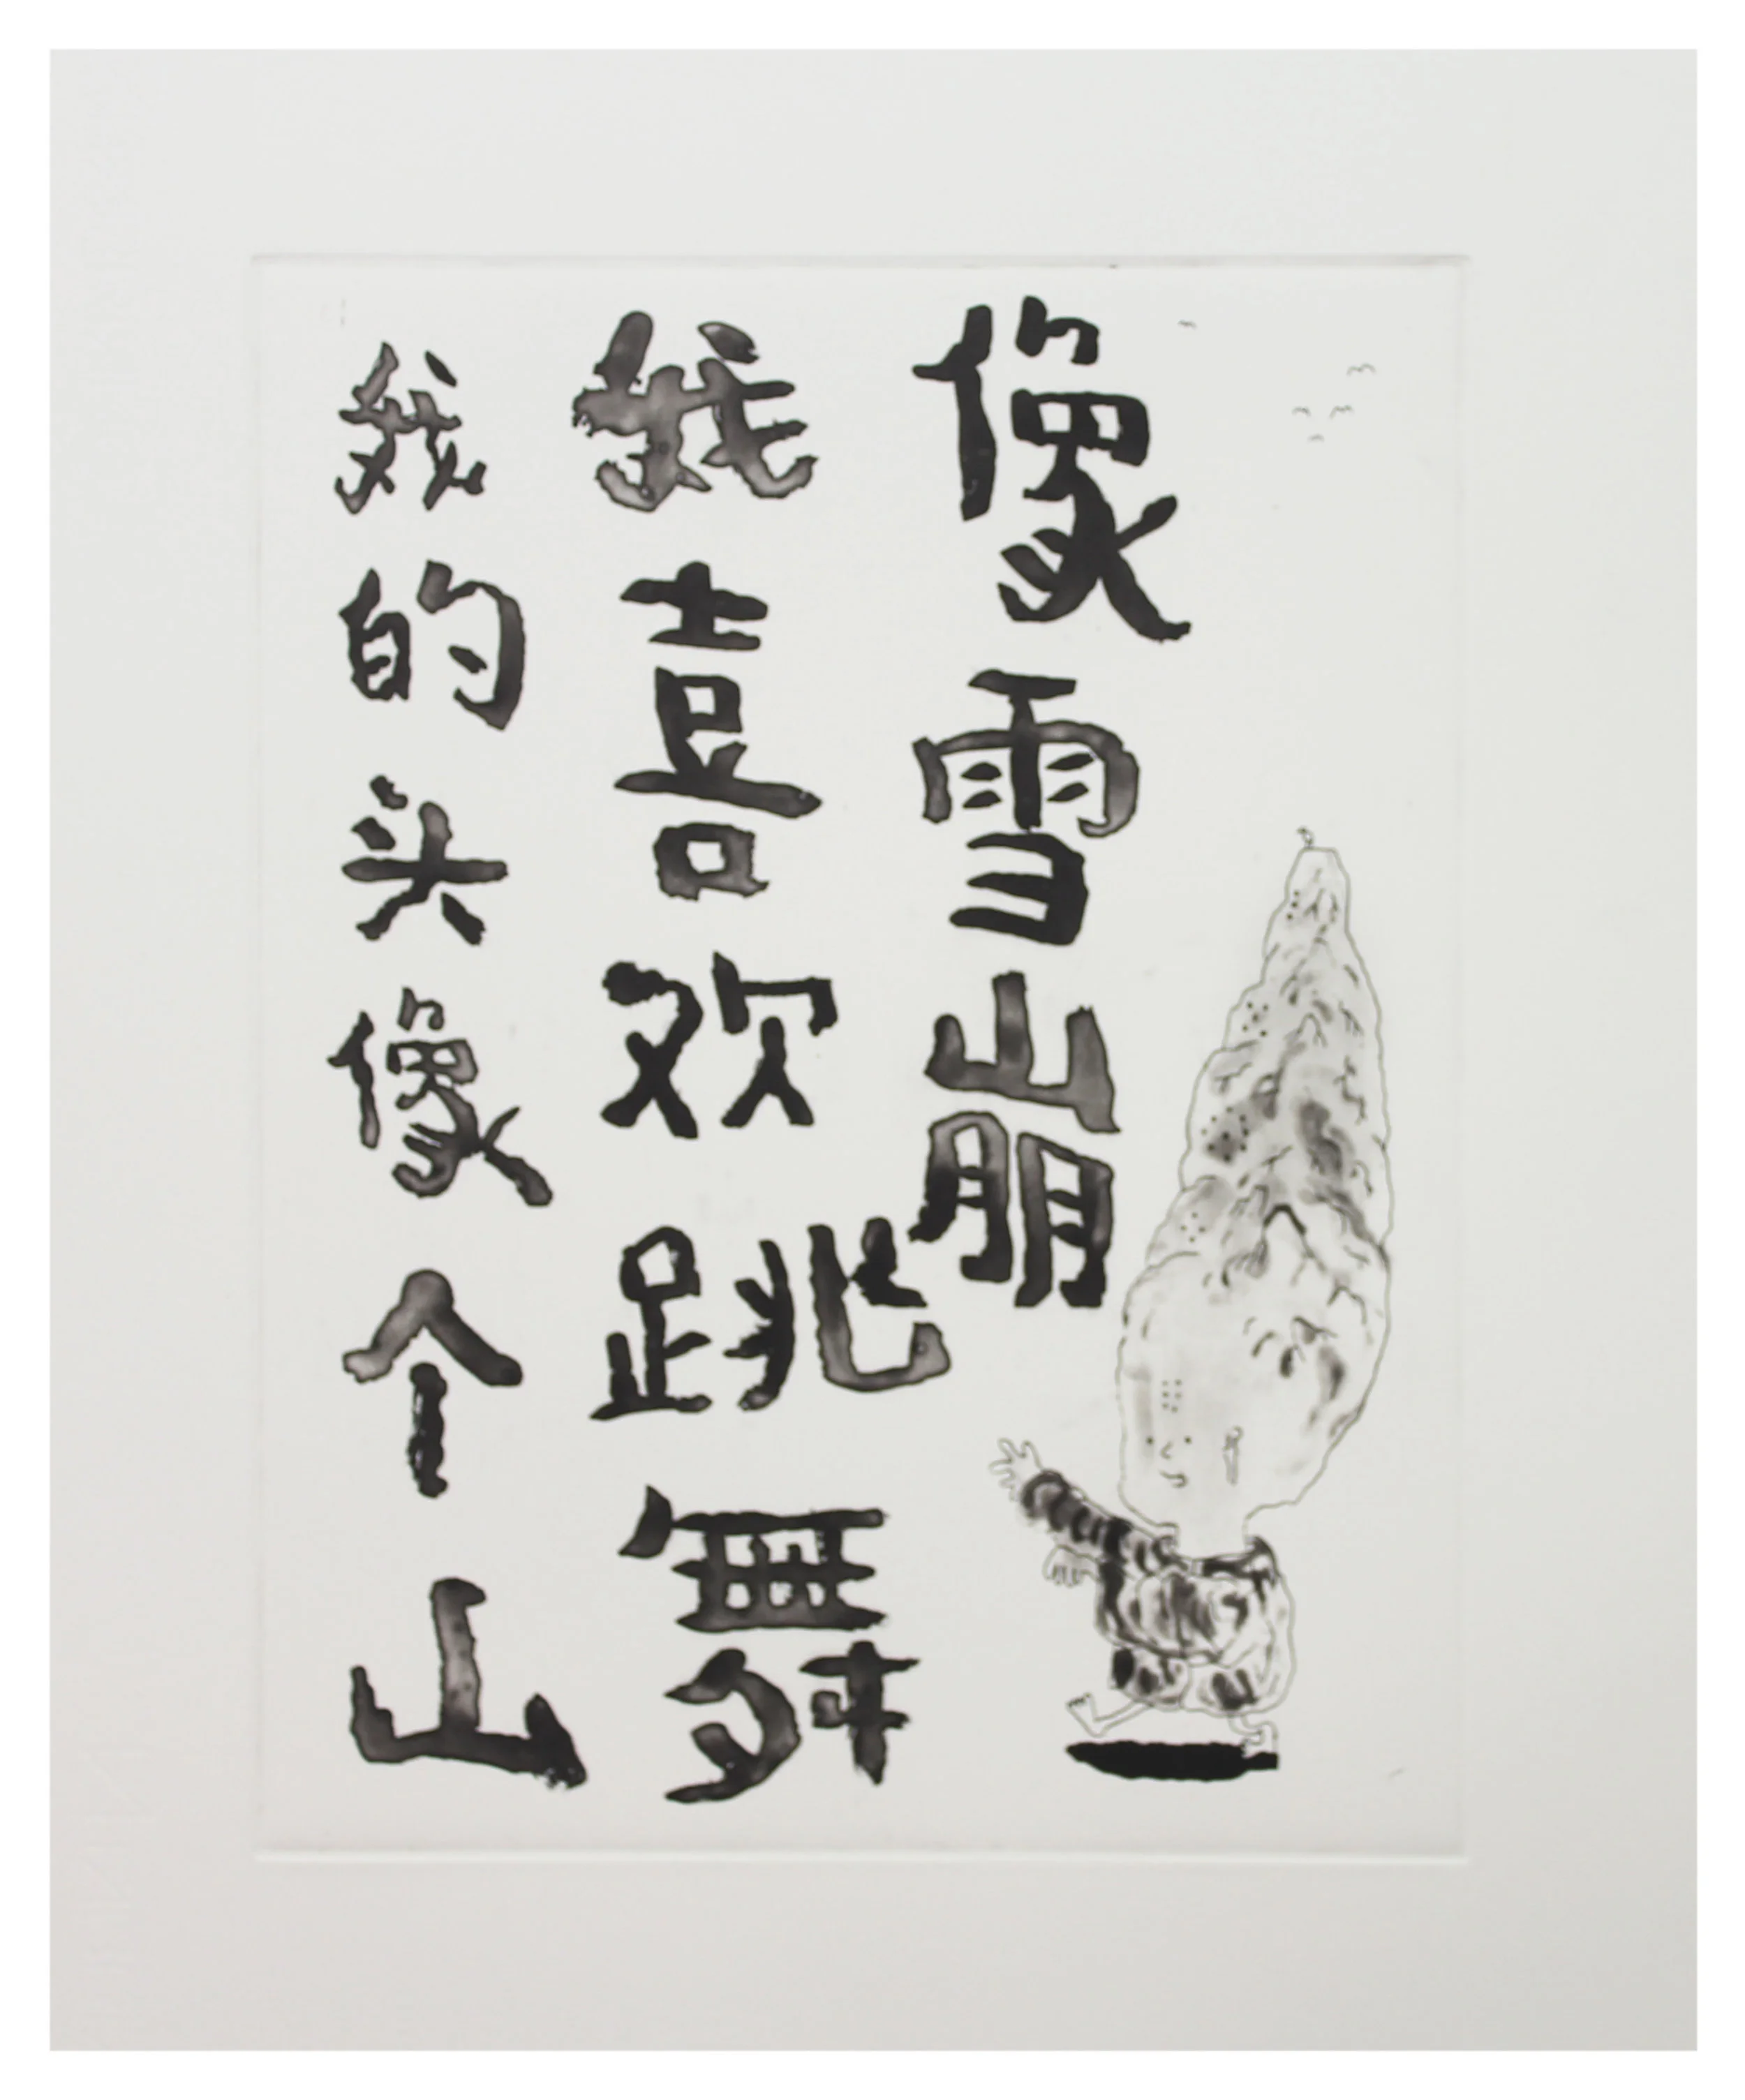 我的头像个山
我喜欢跳舞
像雪山崩